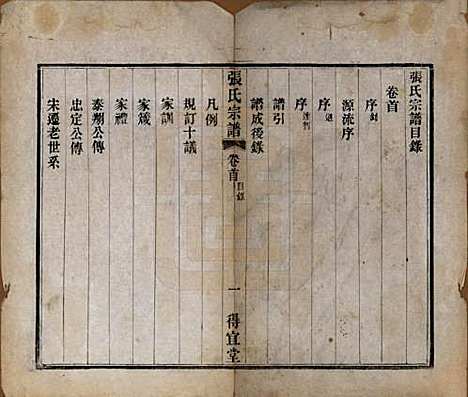 張氏宗譜目錄
卷首
序
源流序
序
序
譜引
譜成後錄
張氏宗譜 卷首 目錄 一 得宜堂
凡例
規訂十議
家訓
家箴
家禮
泰朔公傳
忠定公傳
宋遷老世系